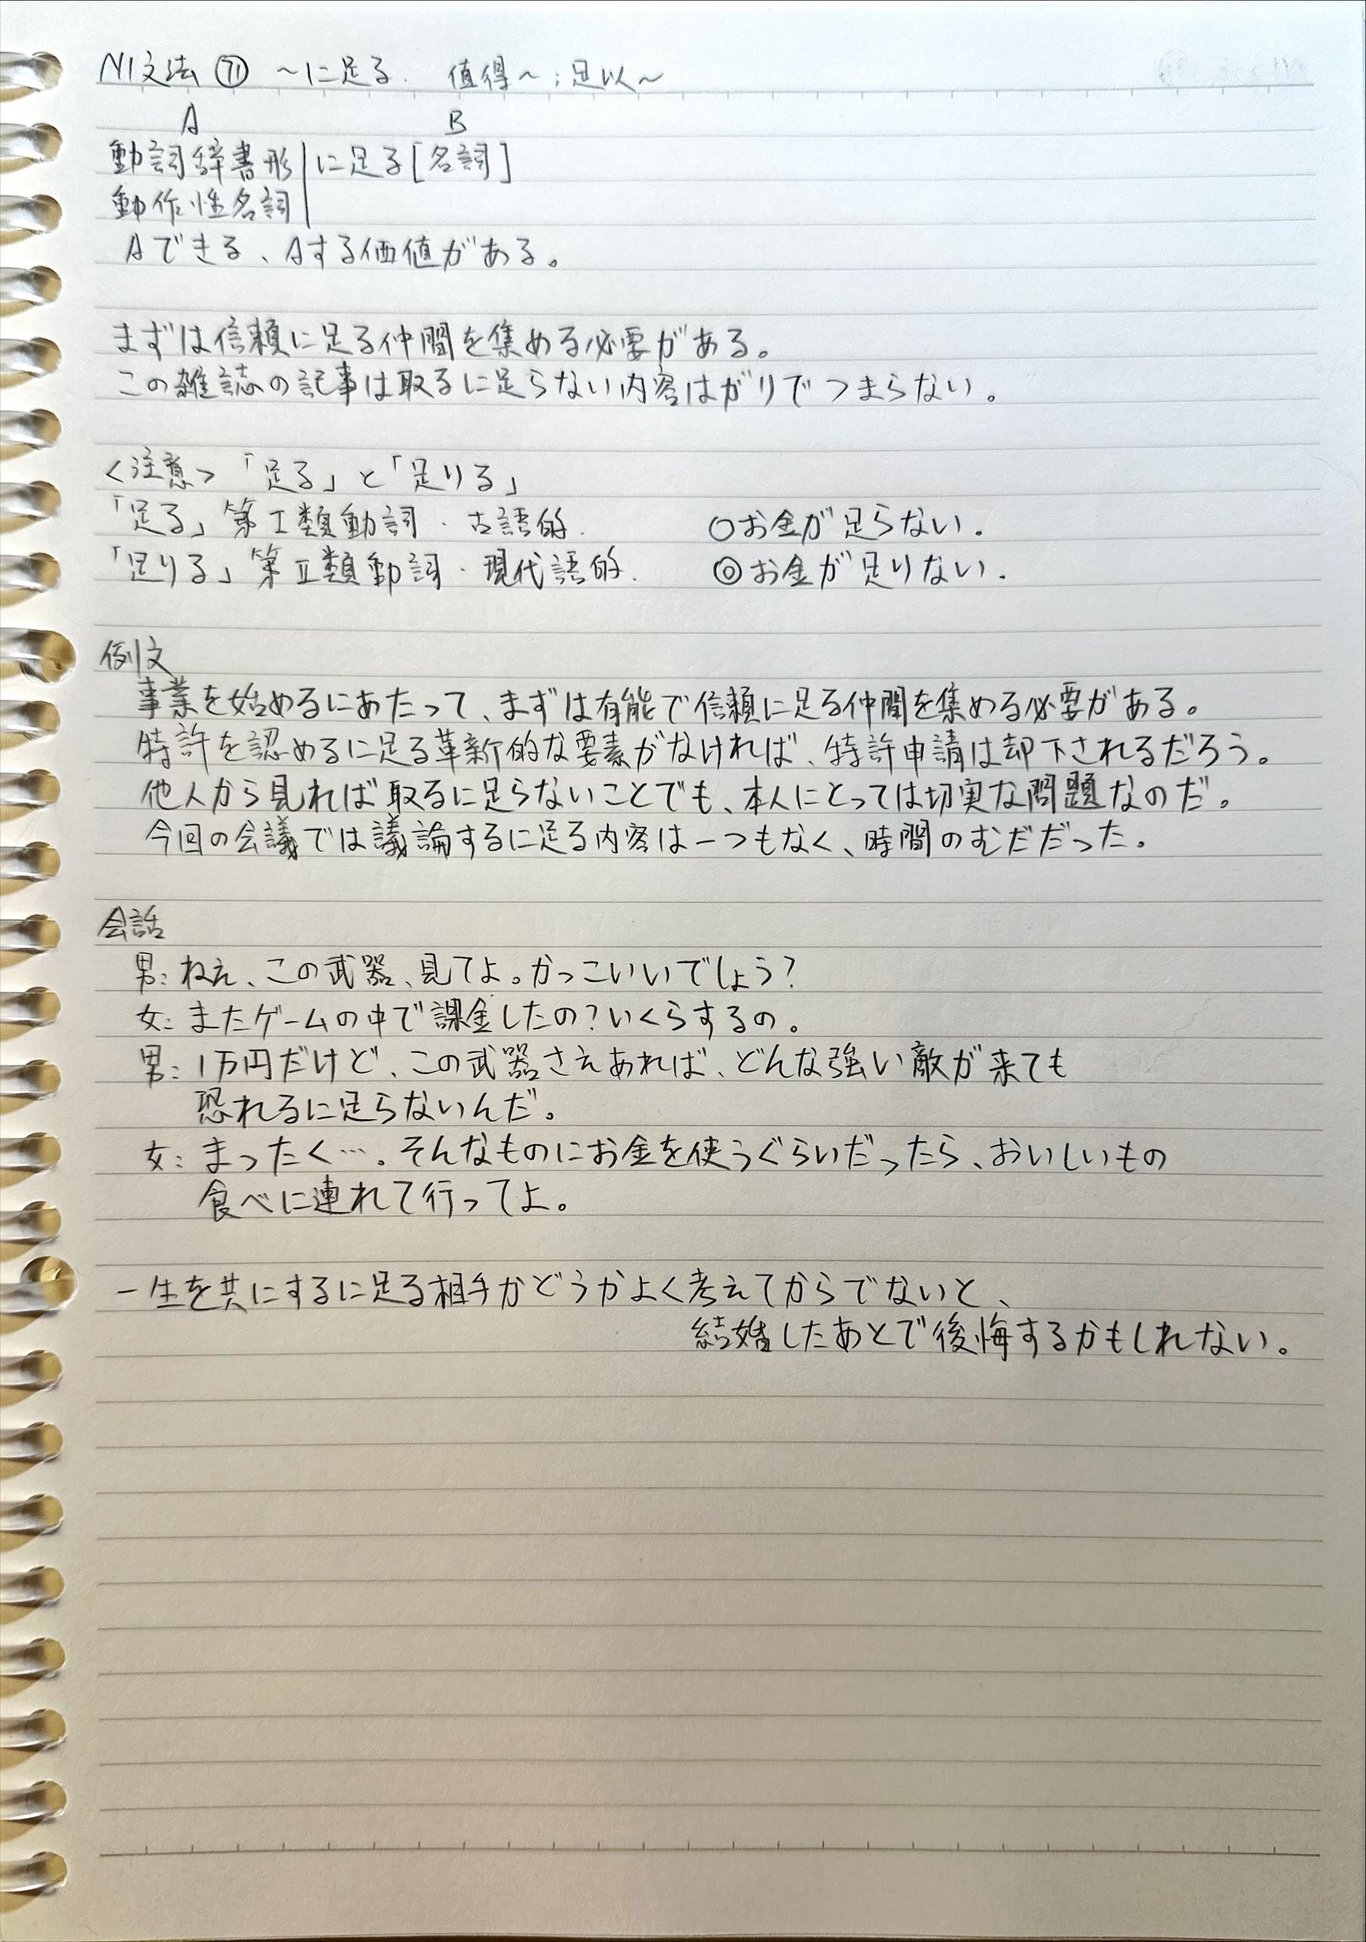 N1文法 ㉛ ～に足る. 值得～;足以～
A B
動詞辞書形 に足る[名詞]
動作性名詞
Aできる、Aする価値がある。
まずは信頼に足る仲間を集める必要がある。
この雑誌の記事は取るに足らない内容ばかりでつまらない。
<注意>「足る」と「足りる」
「足る」第Ⅰ類動詞・古語的. ○お金が足らない.
「足りる」第Ⅱ類動詞・現代語的. ◎お金が足りない.
例文
事業を始めるにあたって、まずは有能で信頼に足る仲間を集める必要がある。
特許を認めるに足る革新的な要素がなければ、特許申請は却下されるだろう。
他人から見れば取るに足らないことでも、本人にとっては切実な問題なのだ。
今回の会議では議論するに足る内容は一つもなく、時間のむだだった。
会話
男:ねえ、この武器、見てよ。かっこいいでしょう?
女:またゲームの中で課金したの?いくらするの。
男:1万円だけど、この武器さえあれば、どんな強い敵が来ても
恐れるに足らないんだ。
女:まったく…。そんなものにお金を使うぐらいだったら、おいしいもの
食べに連れて行ってよ。
一生を共にするに足る相手かどうかよく考えてからでないと、
結婚したあとで後悔するかもしれない。